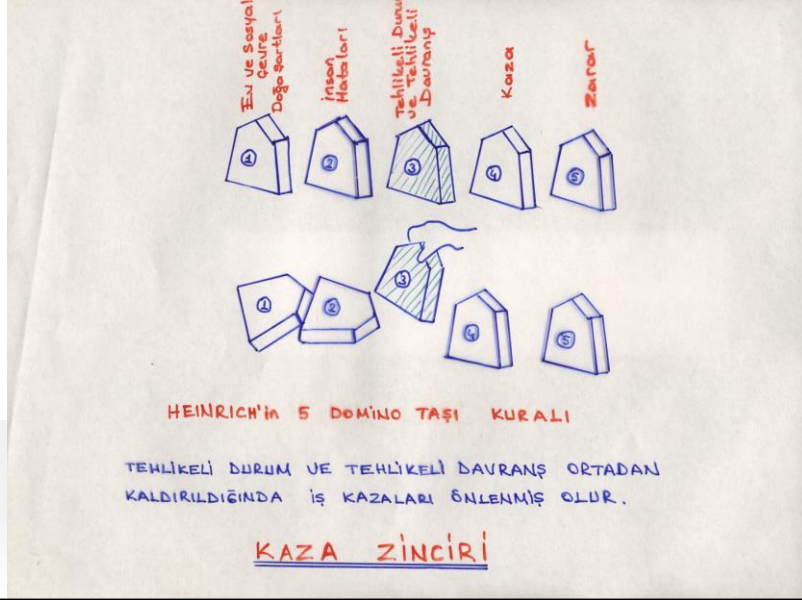 Ev ve Sosyal
Çevre
Doğa Şartları
insan
Hataları
Tehlikeli Duru
ve Tehlikeli
Davranış
Kaza
Zarar
1
2
3
4
5
1
2
3
4
5
HEINRICH'in 5 DOMİNO TAŞI KURALI
TEHLİKELİ DURUM VE TEHLİKELİ DAVRANŞ ORTADAN
KALDIRILDIĞINDA İŞ KAZALARI ÖNLENMİŞ OLUR.
KAZA ZİNCİRİ